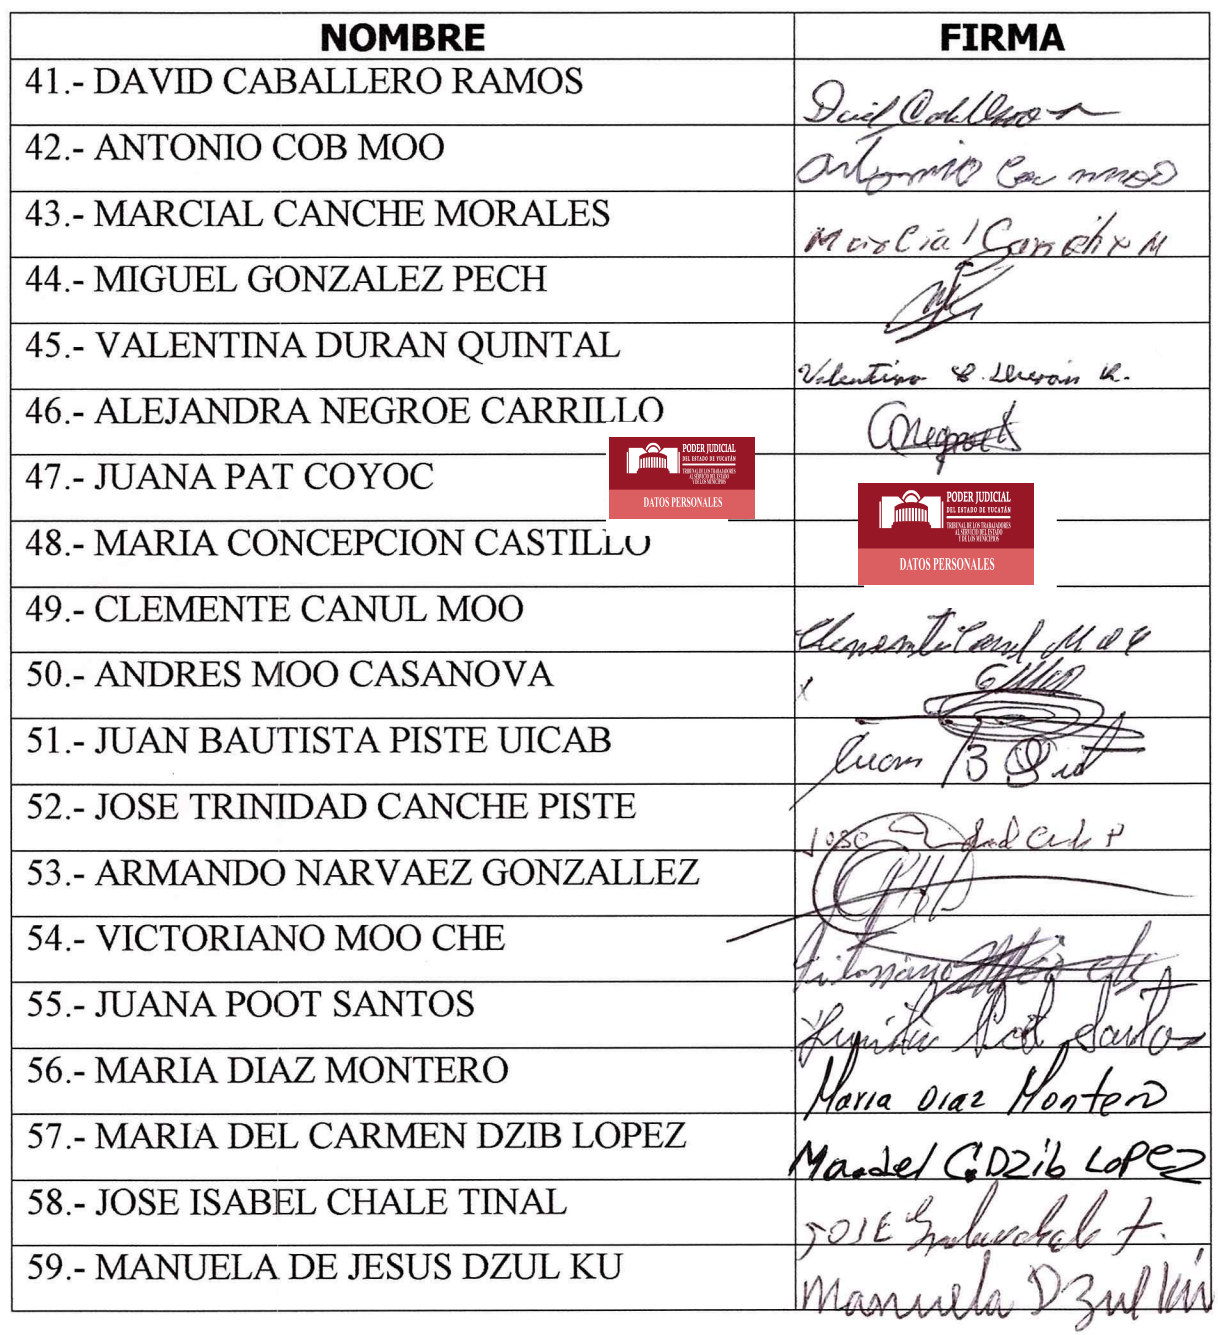 NOMBRE FIRMA
41.- DAVID CABALLERO RAMOS David Caballero
42.- ANTONIO COB MOO Antonio
43.- MARCIAL CANCHE MORALES Marcial Canche M
44.- MIGUEL GONZALEZ PECH
45.- VALENTINA DURAN QUINTAL Valentina
46.- ALEJANDRA NEGROE CARRILLO
PODER JUDICIAL
DEL ESTADO DE YUCATÁN
TRIBUNAL DE LOS TRABAJADORES
AL SERVICIO DEL ESTADO
Y DE LOS MUNICIPIOS
DATOS PERSONALES
47.- JUANA PAT COYOC
PODER JUDICIAL
DEL ESTADO DE YUCATÁN
TRIBUNAL DE LOS TRABAJADORES
AL SERVICIO DEL ESTADO
Y DE LOS MUNICIPIOS
DATOS PERSONALES
48.- MARIA CONCEPCION CASTILLO
49.- CLEMENTE CANUL MOO
50.- ANDRES MOO CASANOVA
51.- JUAN BAUTISTA PISTE UICAB Juan B
52.- JOSE TRINIDAD CANCHE PISTE Jose
53.- ARMANDO NARVAEZ GONZALLEZ
54.- VICTORIANO MOO CHE
55.- JUANA POOT SANTOS Santos
56.- MARIA DIAZ MONTERO Maria Diaz Montero
57.- MARIA DEL CARMEN DZIB LOPEZ Ma. del C. Dzib Lopez
58.- JOSE ISABEL CHALE TINAL JOSE
59.- MANUELA DE JESUS DZUL KU Manuela Dzul Kú